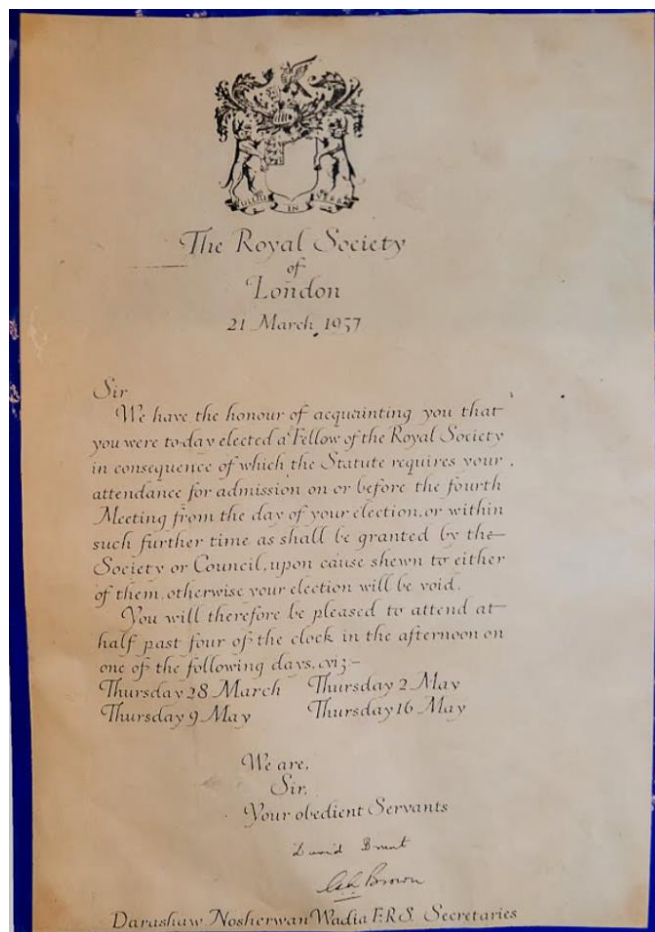 NULLIUS IN VERBA
The Royal Society
of
London
21 March, 1957
Sir
We have the honour of acquainting you that
you were to-day elected a Fellow of the Royal Society
in consequence of which the Statute requires your
attendance for admission on or before the fourth
Meeting from the day of your election, or within
such further time as shall be granted by the
Society or Council, upon cause shewn to either
of them, otherwise your election will be void.
You will therefore be pleased to attend at
half past four of the clock in the afternoon on
one of the following days, viz:-
Thursday 28 March Thursday 2 May
Thursday 9 May Thursday 16 May
We are,
Sir,
Your obedient Servants
David Brunt
Brown
Darashaw Nosherwan Wadia F.R.S. Secretaries